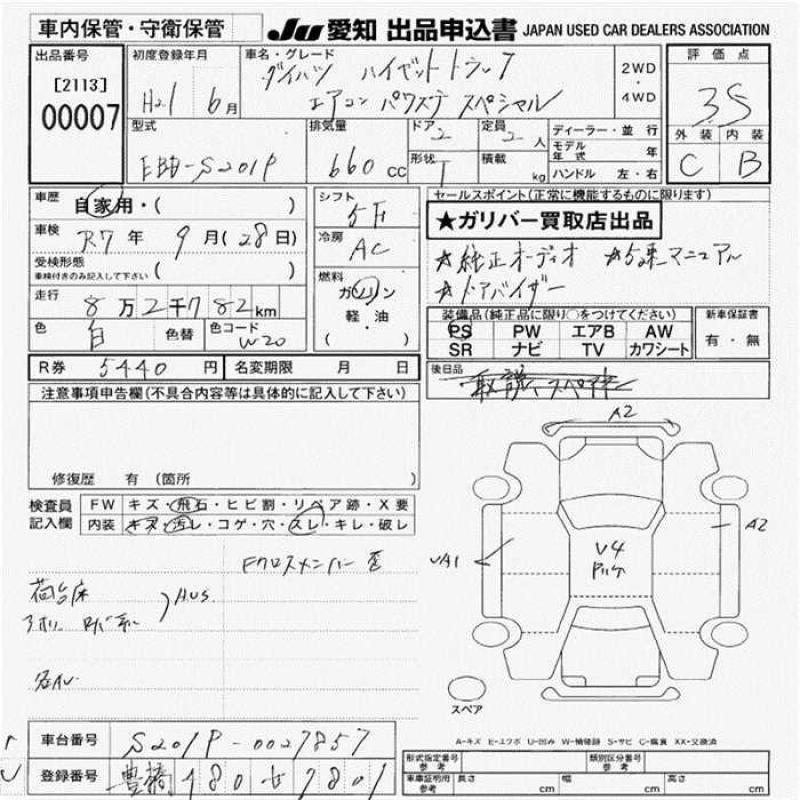 車内保管・守衛保管
JU 愛知 出品申込書 JAPAN USED CAR DEALERS ASSOCIATION
出品番号 [2113] 00007
初度登録年月 H21 6月
車名・グレード ダイハツ ハイゼットトラック
エアコン パワステ スペシャル
2WD・4WD
評価点 3.5
外装 内装
C B
型式 EBD-S201P
排気量 660 cc
ドア 2
定員 2 人
形状 T
積載 kg
ディーラー・並行
モデル年式 年
ハンドル 左・右
車歴 自家用・( )
車検 R7年 9月(28日)
受検形態
車検付きのみ記入して下さい ( )
走行 8万2千782km
色 白 色替 色コード W20
シフト 5F
冷房 AC
燃料 ガソリン
軽・油
( )
セールスポイント(正常に機能するものに限ります)
★ガリバー買取店出品
★純正オーディオ ★5速マニュアル
★ドアバイザー
装備品(純正品に限り○をつけてください)
PS PW エアB AW
SR ナビ TV カワシート
新車保証書
有・無
R券 5440 円 名変期限 月 日
後日品
注意事項申告欄(不具合内容等は具体的に記入して下さい)
修復歴 有 (箇所 )
検査員記入欄
FW キズ・飛石・ヒビ割・リペア跡・X要
内装 キズ・汚レ・コゲ・穴・スレ・キレ・破レ
Fクロスメンバー歪
荷台床
A2
A2
UA1
V4
スペア
A-キズ E-エクボ U-凹み W-補修跡 S-サビ C-腐食 XX-交換済
車台番号 S201P-0027857
登録番号 豊橋 480 せ 7801
形式指定番号 参考
類別区分番号 参考
車庫証明用 参考 長さ cm 幅 cm 高さ cm